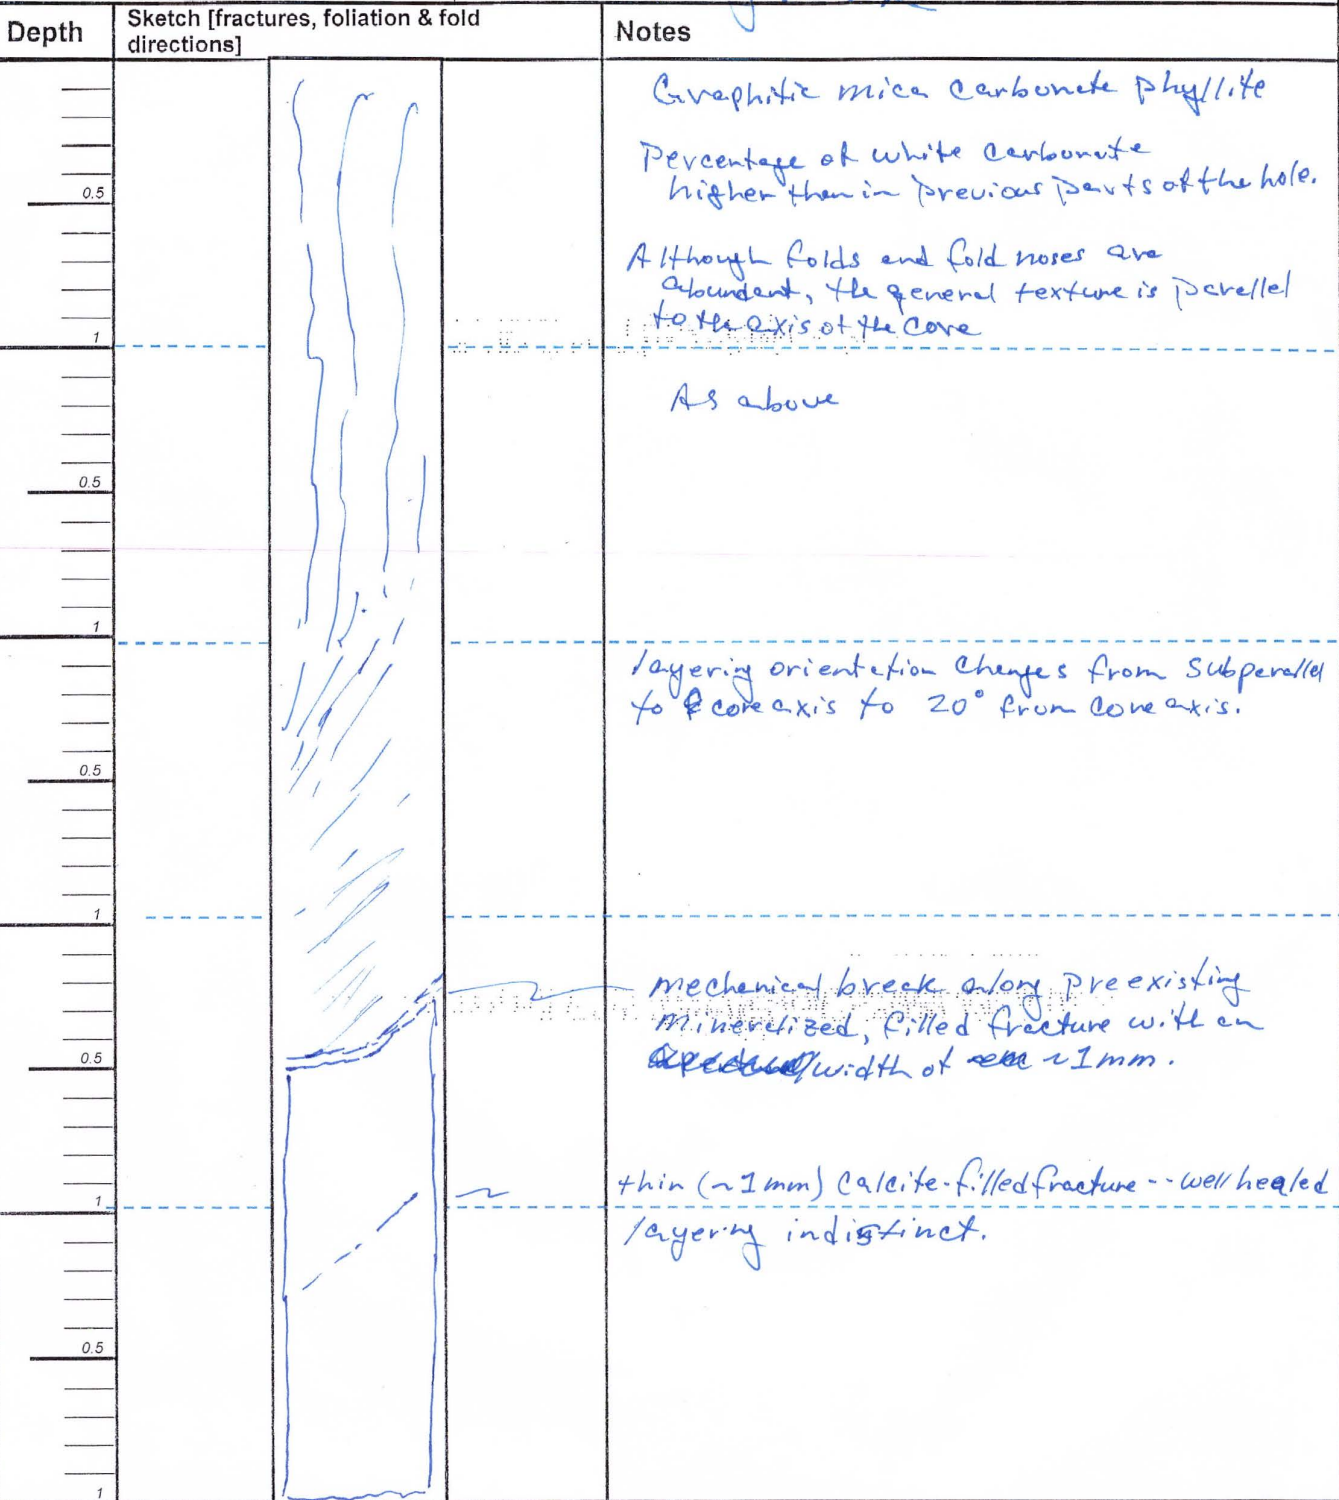 Depth
Sketch [fractures, foliation & fold
directions]
Notes
Graphitic mica carbonate phyllite
Percentage of white carbonate
higher than in previous parts of the hole.
0.5
Although folds and fold noses are
abundant, the general texture is parallel
to the axis of the core
1
As above
0.5
1
layering orientation changes from subparallel
to core axis to 20° from core axis.
0.5
1
mechanical break along preexisting
mineralized, filled fracture with an
width of ~1mm.
0.5
thin (~1mm) calcite-filled fracture -- well healed
1
layering indistinct.
0.5
1